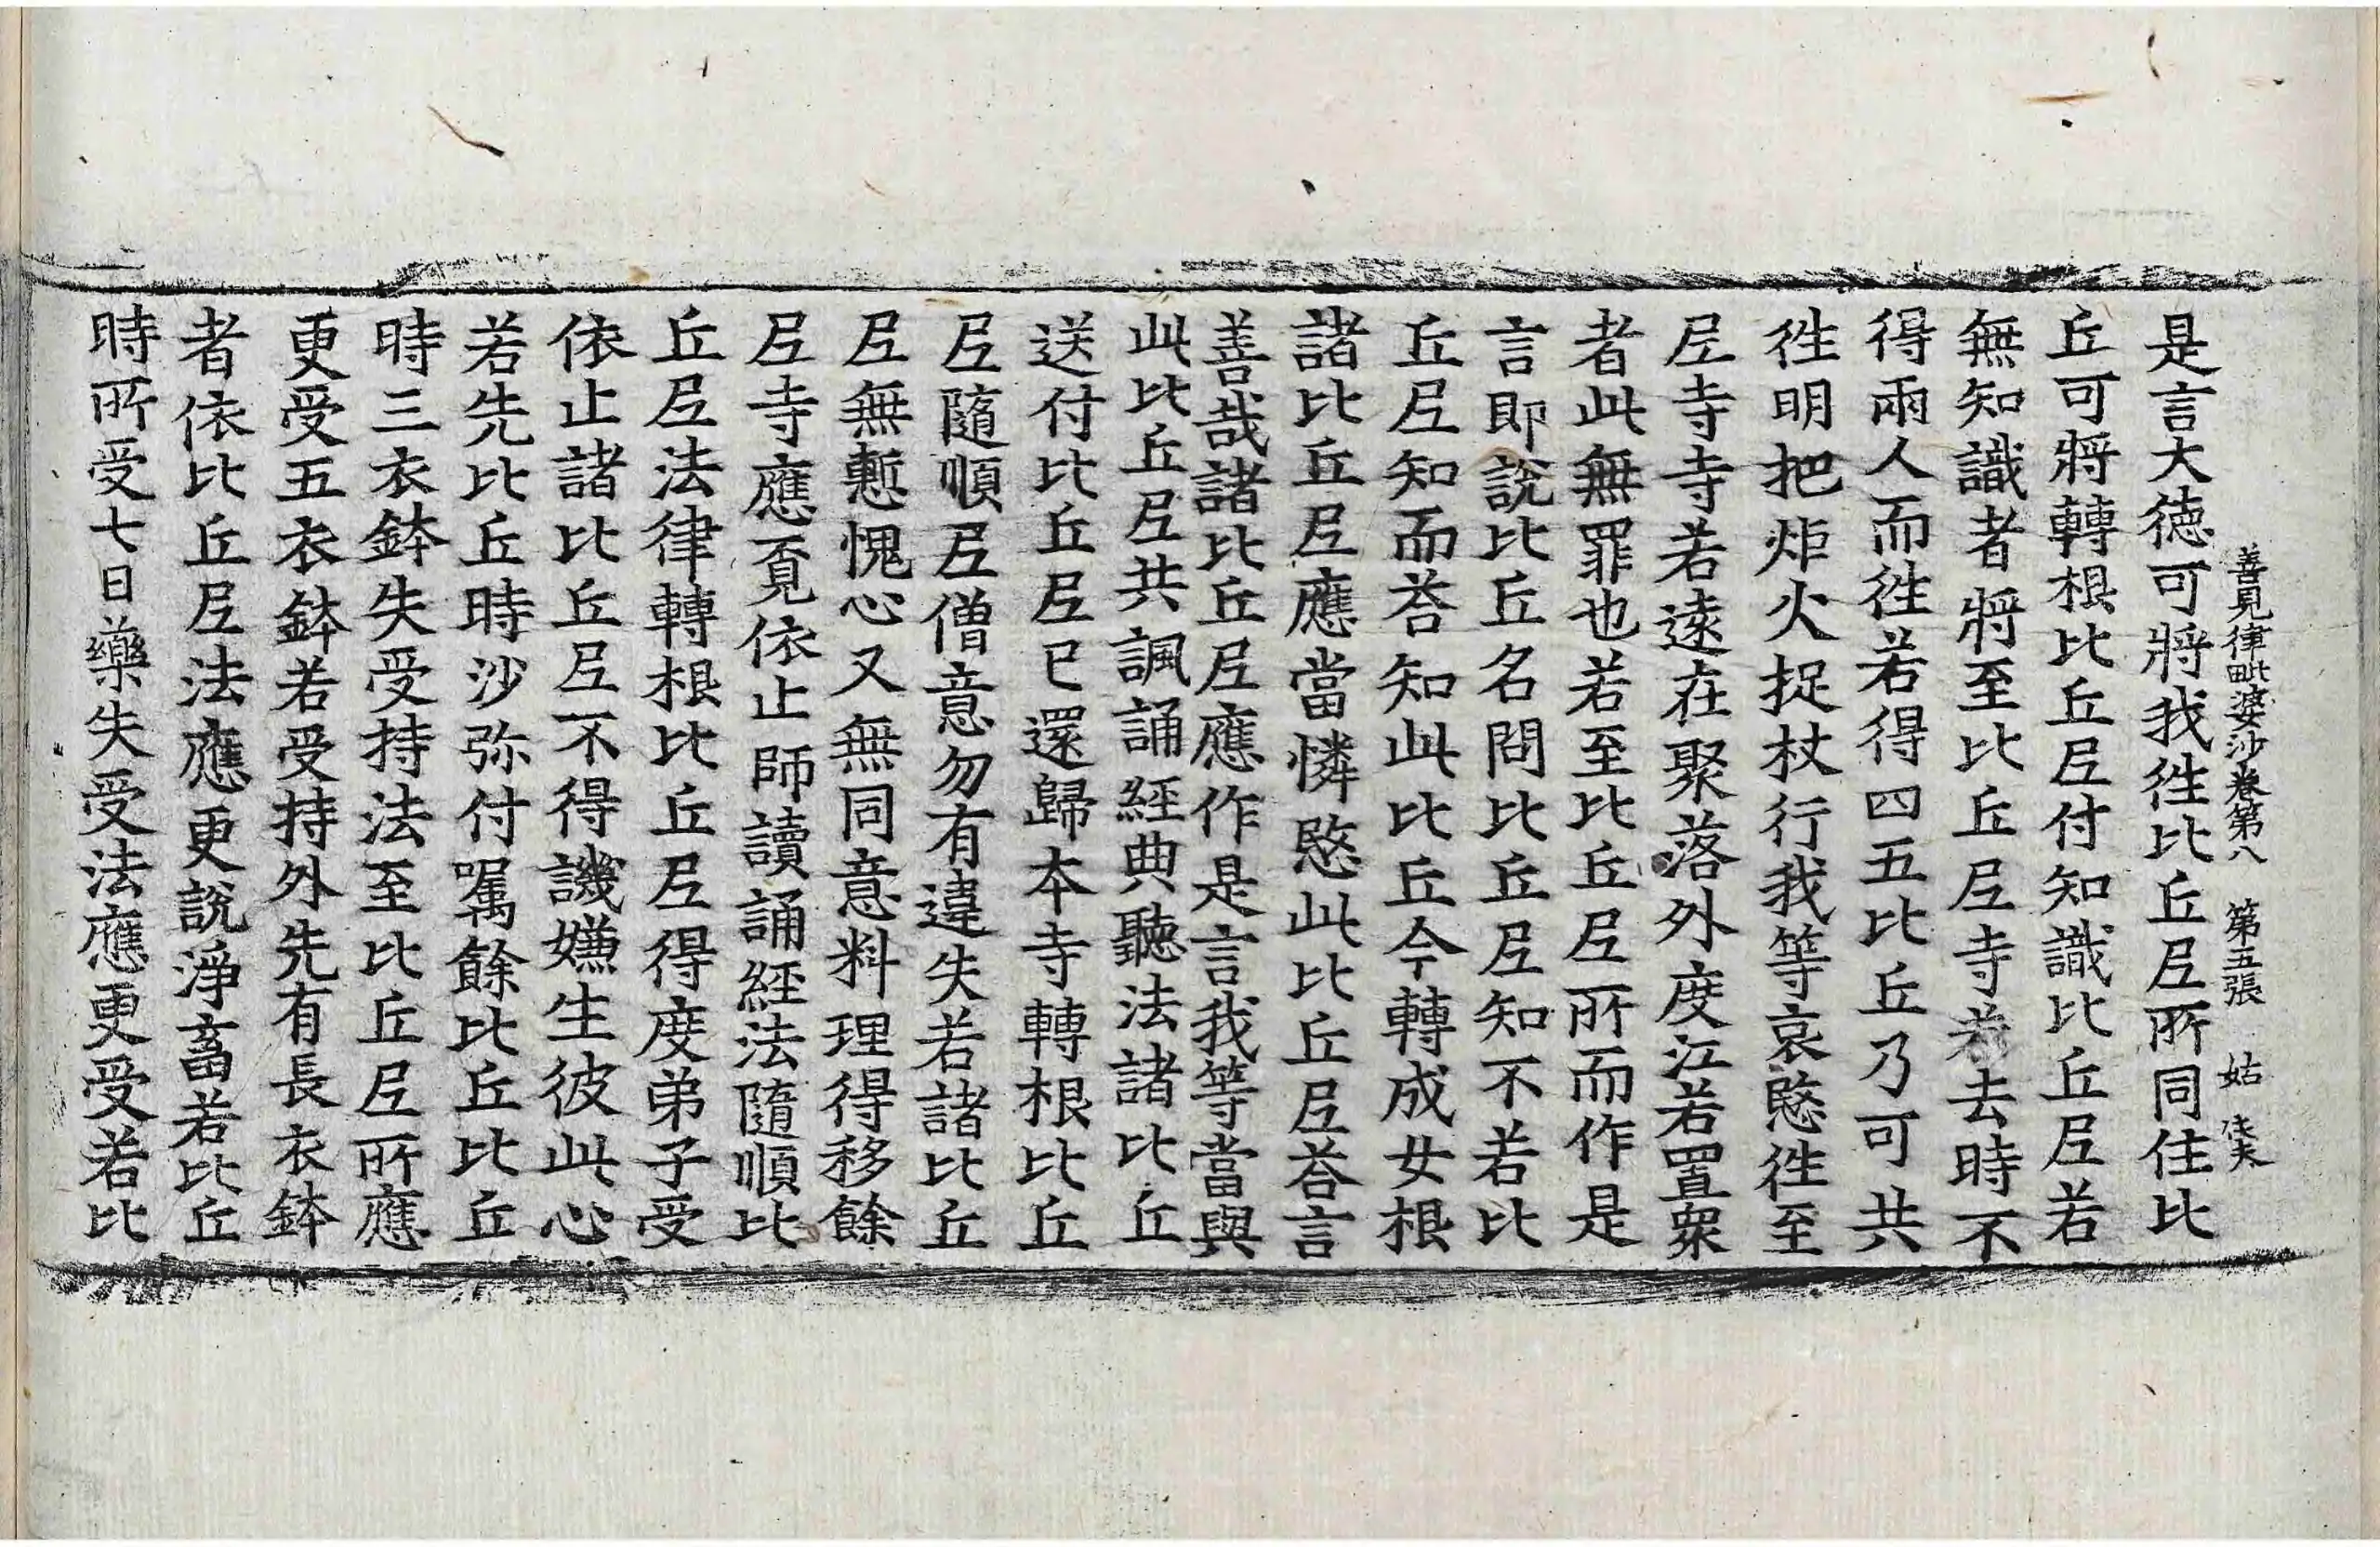 善見律毗婆沙卷第八　第五張　姑
是言大德可將我徃比丘尼所同住比
丘可將轉根比丘尼付知識比丘尼若
無知識者將至比丘尼寺若去時不
得兩人而徃若得四五比丘乃可共
徃明把炬火捉杖行我等哀愍徃至
尼寺寺若遠在聚落外度江若置衆
者此無罪也若至比丘尼所而作是
言即說比丘名問比丘尼知不若比
丘尼知而荅知此比丘今轉成女根
諸比丘尼應當憐愍此比丘尼荅言
善哉諸比丘尼應作是言我等當與
此比丘尼共諷誦經典聽法諸比丘
送付比丘尼已還歸本寺轉根比丘
尼隨順尼僧意勿有違失若諸比丘
尼無慙愧心又無同意料理得移餘
尼寺應覔依止師讀誦經法隨順比
丘尼法律轉根比丘尼得度弟子受
依止諸比丘尼不得譏嫌生彼此心
若先比丘時沙弥付囑餘比丘比丘
時三衣鉢失受持法至比丘尼所應
更受五衣鉢若受持外先有長衣鉢
者依比丘尼法應更說淨畜若比丘
時所受七日藥失受法應更受若比